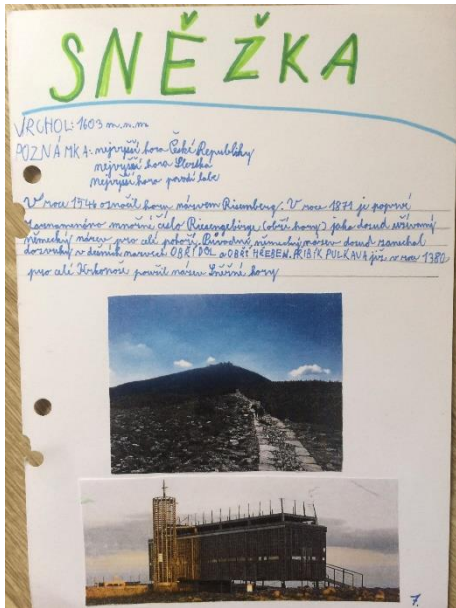 SNĚŽKA
VRCHOL: 1603 m.n.m.
POZNÁMKA: nejvyšší hora České Republiky
nejvyšší hora Slezka
nejvyšší hora povodí labe
V roce 1544 označil horu názvem Riesenberg. V roce 1871 je poprvé
zaznamenáno množné číslo Riesengebirge (obří hory) jako dosud užívaný
německý název pro celé pohoří. Původní německý název dosud zanechal
dozvuky v názvech OBŘÍ DŮL a OBŘÍ HŘEBEN. PŘIBÍK PULKAVA již v roce 1380
pro celé Krkonoše použil název Sněžné hory
7.